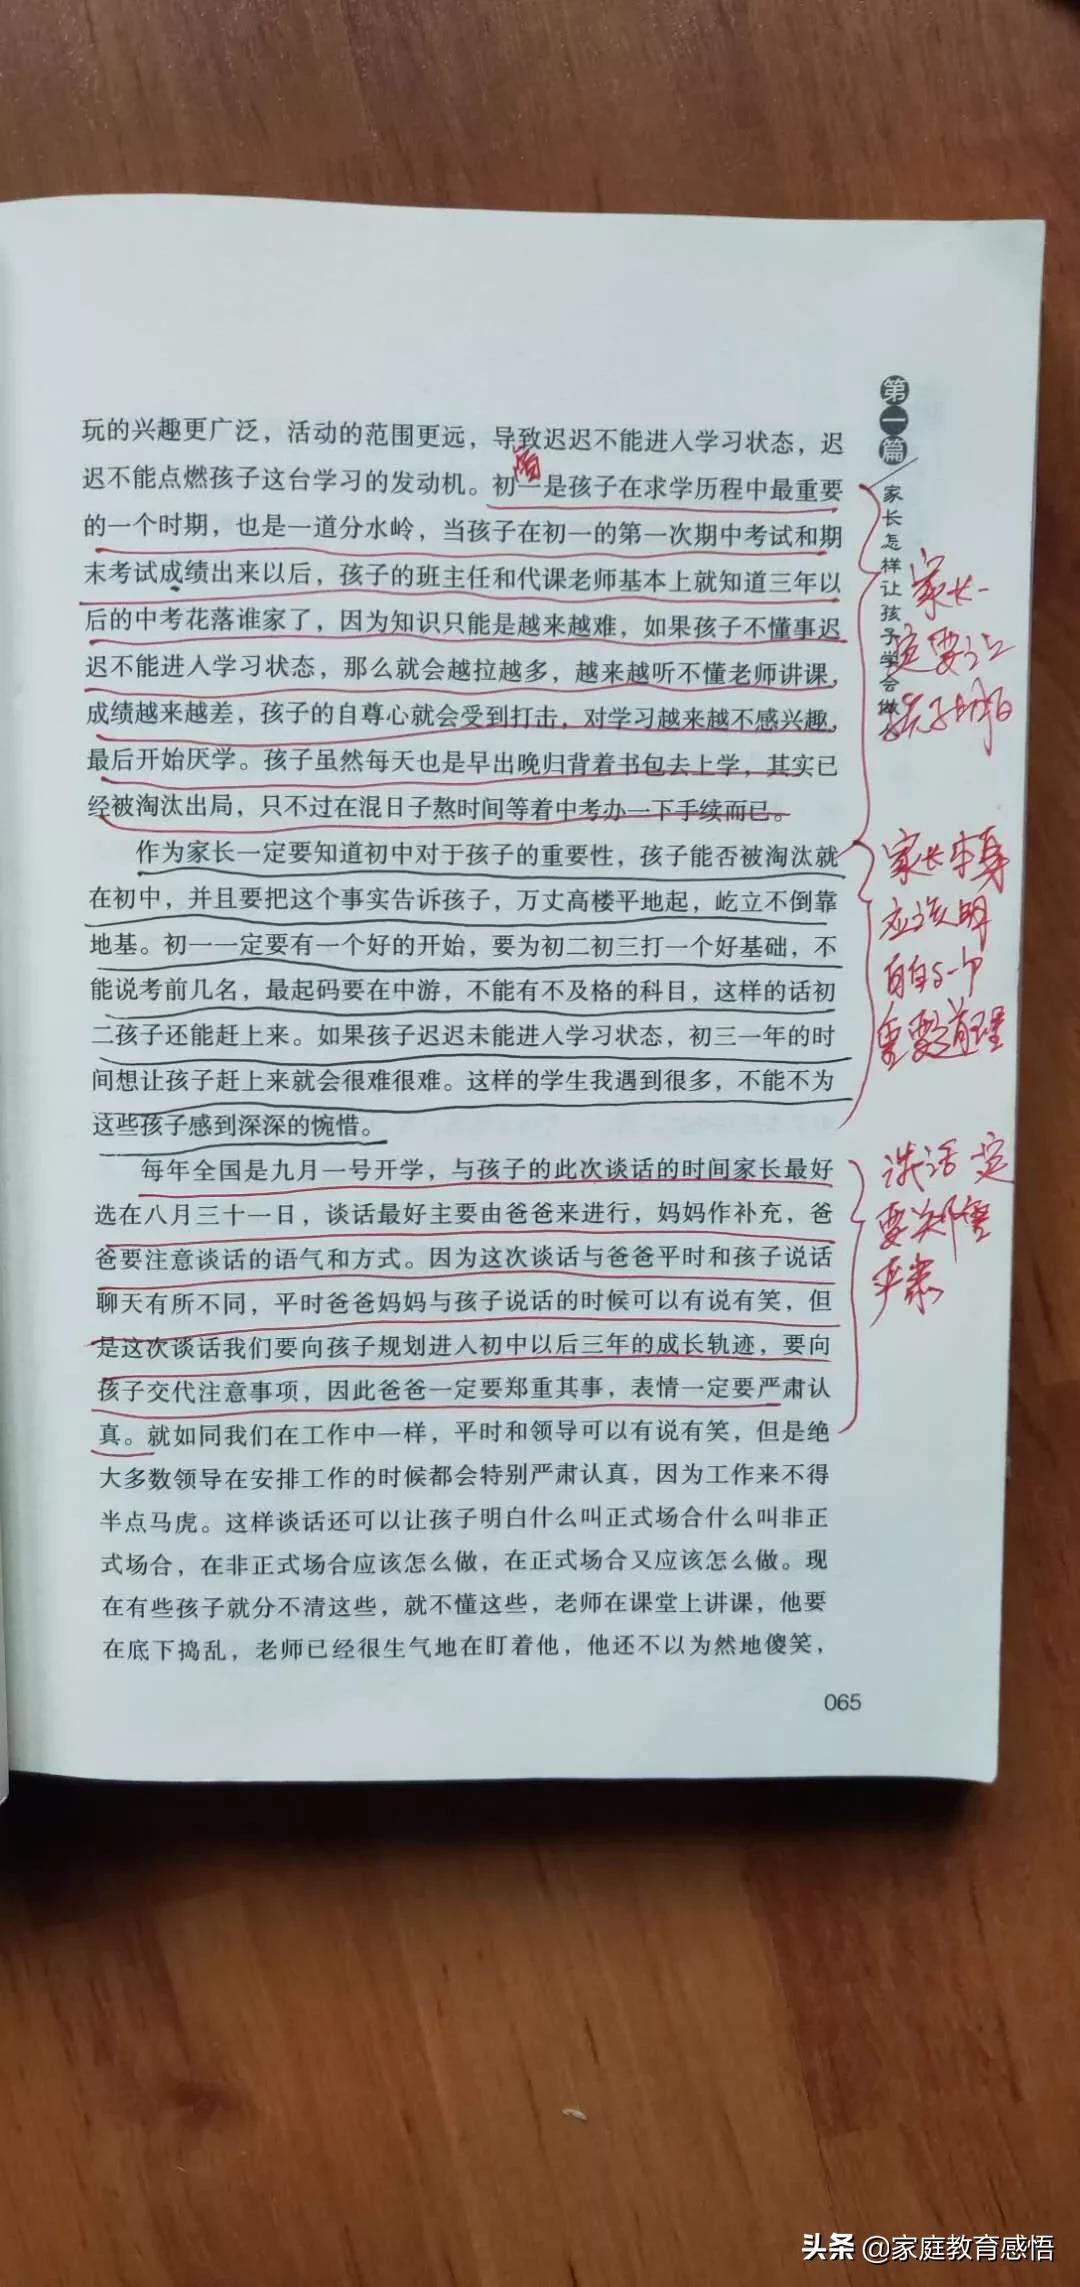 第一篇
家长怎样让孩子学会做人
玩的兴趣更广泛，活动的范围更远，导致迟迟不能进入学习状态，迟
迟不能点燃孩子这台学习的发动机。初一是孩子在求学历程中最重要
的一个时期，也是一道分水岭，当孩子在初一的第一次期中考试和期
末考试成绩出来以后，孩子的班主任和代课老师基本上就知道三年以
后的中考花落谁家了，因为知识只能是越来越难，如果孩子不懂事迟
迟不能进入学习状态，那么就会越拉越多，越来越听不懂老师讲课，
成绩越来越差，孩子的自尊心就会受到打击，对学习越来越不感兴趣，
最后开始厌学。孩子虽然每天也是早出晚归背着书包去上学，其实已
经被淘汰出局，只不过在混日子熬时间等着中考办一下手续而已。
作为家长一定要知道初中对于孩子的重要性，孩子能否被淘汰就
在初中，并且要把这个事实告诉孩子，万丈高楼平地起，屹立不倒靠
地基。初一一定要有一个好的开始，要为初二初三打一个好基础，不
能说考前几名，最起码要在中游，不能有不及格的科目，这样的话初
二孩子还能赶上来。如果孩子迟迟未能进入学习状态，初三一年的时
间想让孩子赶上来就会很难很难。这样的学生我遇到很多，不能不为
这些孩子感到深深的惋惜。
每年全国是九月一号开学，与孩子的此次谈话的时间家长最好
选在八月三十一日，谈话最好主要由爸爸来进行，妈妈作补充，爸
爸要注意谈话的语气和方式。因为这次谈话与爸爸平时和孩子说话
聊天有所不同，平时爸爸妈妈与孩子说话的时候可以有说有笑，但
是这次谈话我们要向孩子规划进入初中以后三年的成长轨迹，要向
孩子交代注意事项，因此爸爸一定要郑重其事，表情一定要严肃认
真。就如同我们在工作中一样，平时和领导可以有说有笑，但是绝
大多数领导在安排工作的时候都会特别严肃认真，因为工作来不得
半点马虎。这样谈话还可以让孩子明白什么叫正式场合什么叫非正
式场合，在非正式场合应该怎么做，在正式场合又应该怎么做。现
在有些孩子就分不清这些，就不懂这些，老师在课堂上讲课，他要
在底下捣乱，老师已经很生气地在盯着他，他还不以为然地傻笑，
家长一
定要让
孩子明白
家长本身
应该明
白这个
重要道理
谈话一定
要郑重
严肃
065
头条 @家庭教育感悟